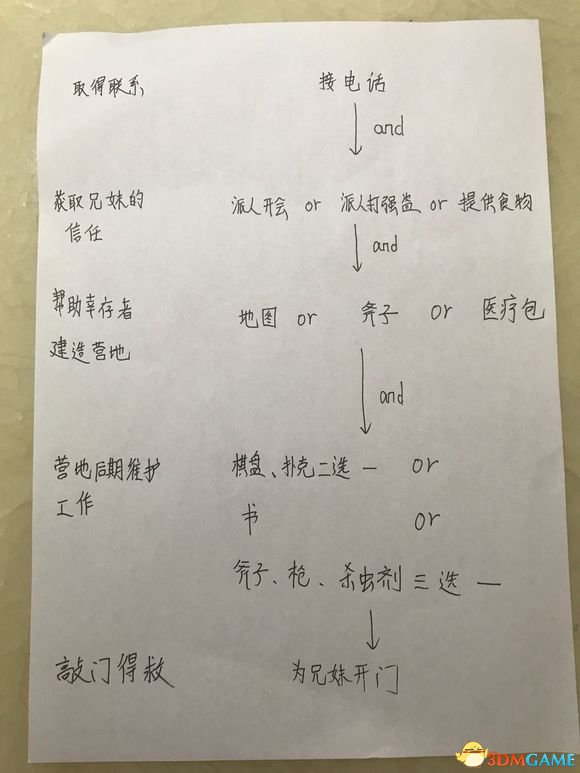 取得联系 接电话
and
获取兄妹的 派人开会 or 派人打强盗 or 提供食物
信任
and
帮助幸存者 地图 or 斧子 or 医疗包
建造营地
and
营地后期维护 棋盘、扑克二选一 or
工作
书 or
斧子、枪、杀虫剂三选一
敲门得救 为兄妹开门
3DMGAME